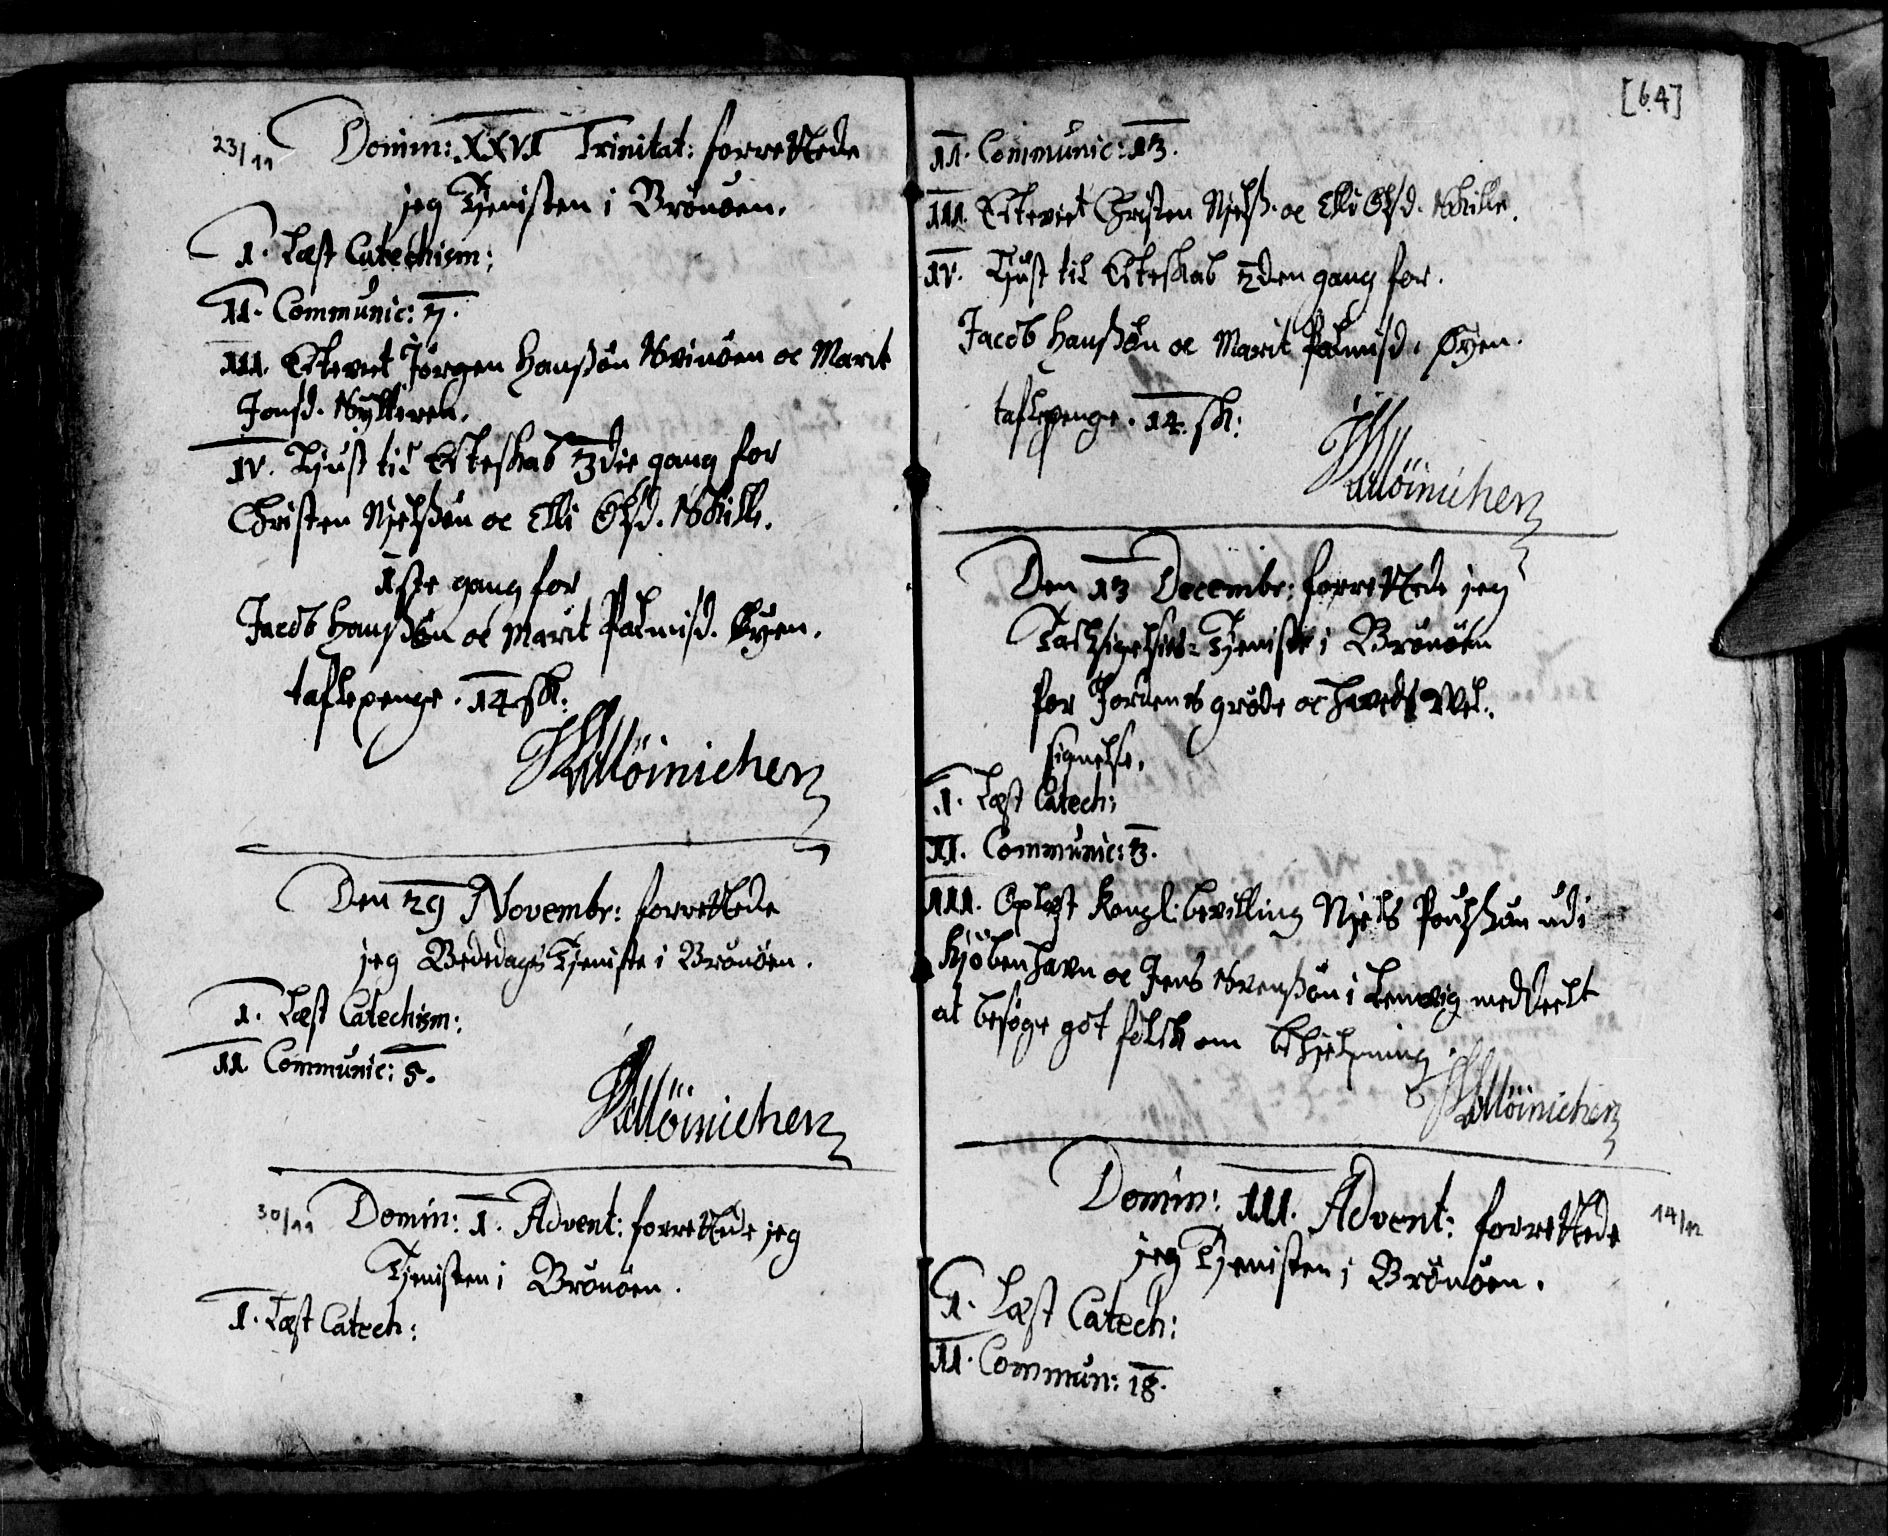 23/11 Domin: XXVI Trinitat: forrettede
jeg Tjenisten i Brönöen.
I. Læst Catechism:
II. Communic: 7.
III. Ecteviet Jørgen Hanssøn Svinöen oc Marit
Jonsd.
IV. Liust til Ecteskab 3die gang for
Christen Njelssøn oc Elli Olsd. Skille.
1ste gang for
Jacob Hanssøn oc Marit Palmisd. Øyen.
taflepenge. 14 sk:
Möinichen
Den 29 Novembr: forrettede
jeg Bededags Tjeniste i Brönöen.
I. Læst Catechism:
II. Communic: 5.
Möinichen
30/11 Domin: I. Advent: forrettede jeg
Tjenisten i Brönöen.
I. Læst Catech:
[64]
II. Communic: 13.
III. Ecteviet Christen Njelss. oc Elli Olsd. Skille.
IV. Liust til Ecteskab 2den gang for.
Jacob Hanssøn oc Marit Palmisd. Øyen.
taflepenge. 14. sk:
Möinichen
Den 13 Decembr: forrettede jeg
Tacksigelses-Tjeniste i Brönöen
for Jordens grøde oc havets Vel-
signelse.
I. Læst Catech:
II. Communic: 3.
III. Oplæst Kongl: bevilling Njels Poulssøn udi
Kjöbenhavn oc Jens Svenssøn i Lemvig meddeelt
at besøge got folck om behjelpning.
Möinichen
Domin: III. Advent: forrettede 14/12
jeg Tjenisten i Brönöen.
I. Læst Catech:
II. Commun: 18.